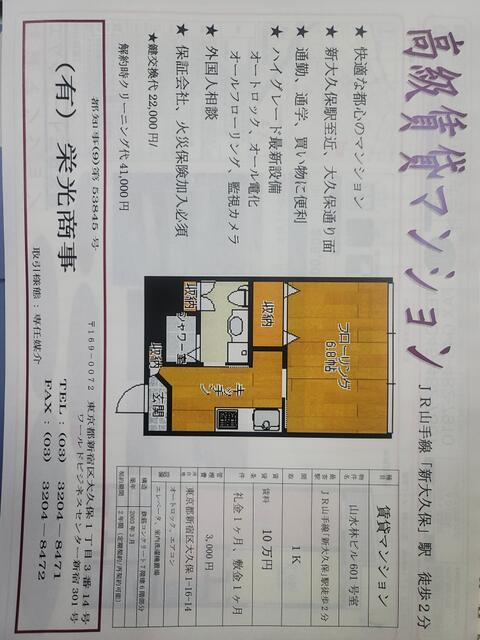 高級賃貸マンション
JR山手線「新大久保」駅 徒歩2分
★ 快適な都心のマンション
★ 新大久保駅至近、大久保通り面
★ 通勤、通学、買い物に便利
★ ハイグレード最新設備
オートロック、オール電化
オールフローリング、監視カメラ
★ 外国人相談
★ 保証会社、火災保険加入必須
★鍵交換代 22,000円/
解約時クリーニング代 41,000円
フローリング
6.8帖
収納
収納
シャワー室
収納
キッチン
玄関
種目 賃貸マンション
物件名 山水林ビル 601号室
最寄駅 JR山手線「新大久保」駅徒歩2分
間取 1K
賃料 10万円
条件 礼金1ヶ月、敷金1ヶ月
管理費 3,000円
所在地 東京都新宿区大久保1-16-14
設備 オートロック、エアコン
エレベータ、室内洗濯機置場
構造 鉄筋コンクリート7階建6階部分
築年 2003年3月
契約期間 2年間(定期契約/再契約可能)
都知事(9)第53845号
(有)栄光商事
取引様態:専任媒介
〒169-0072 東京都新宿区大久保1丁目3番14号
ワールドビジネスセンター新宿301号
TEL:(03) 3204-8471
FAX:(03) 3204-8472